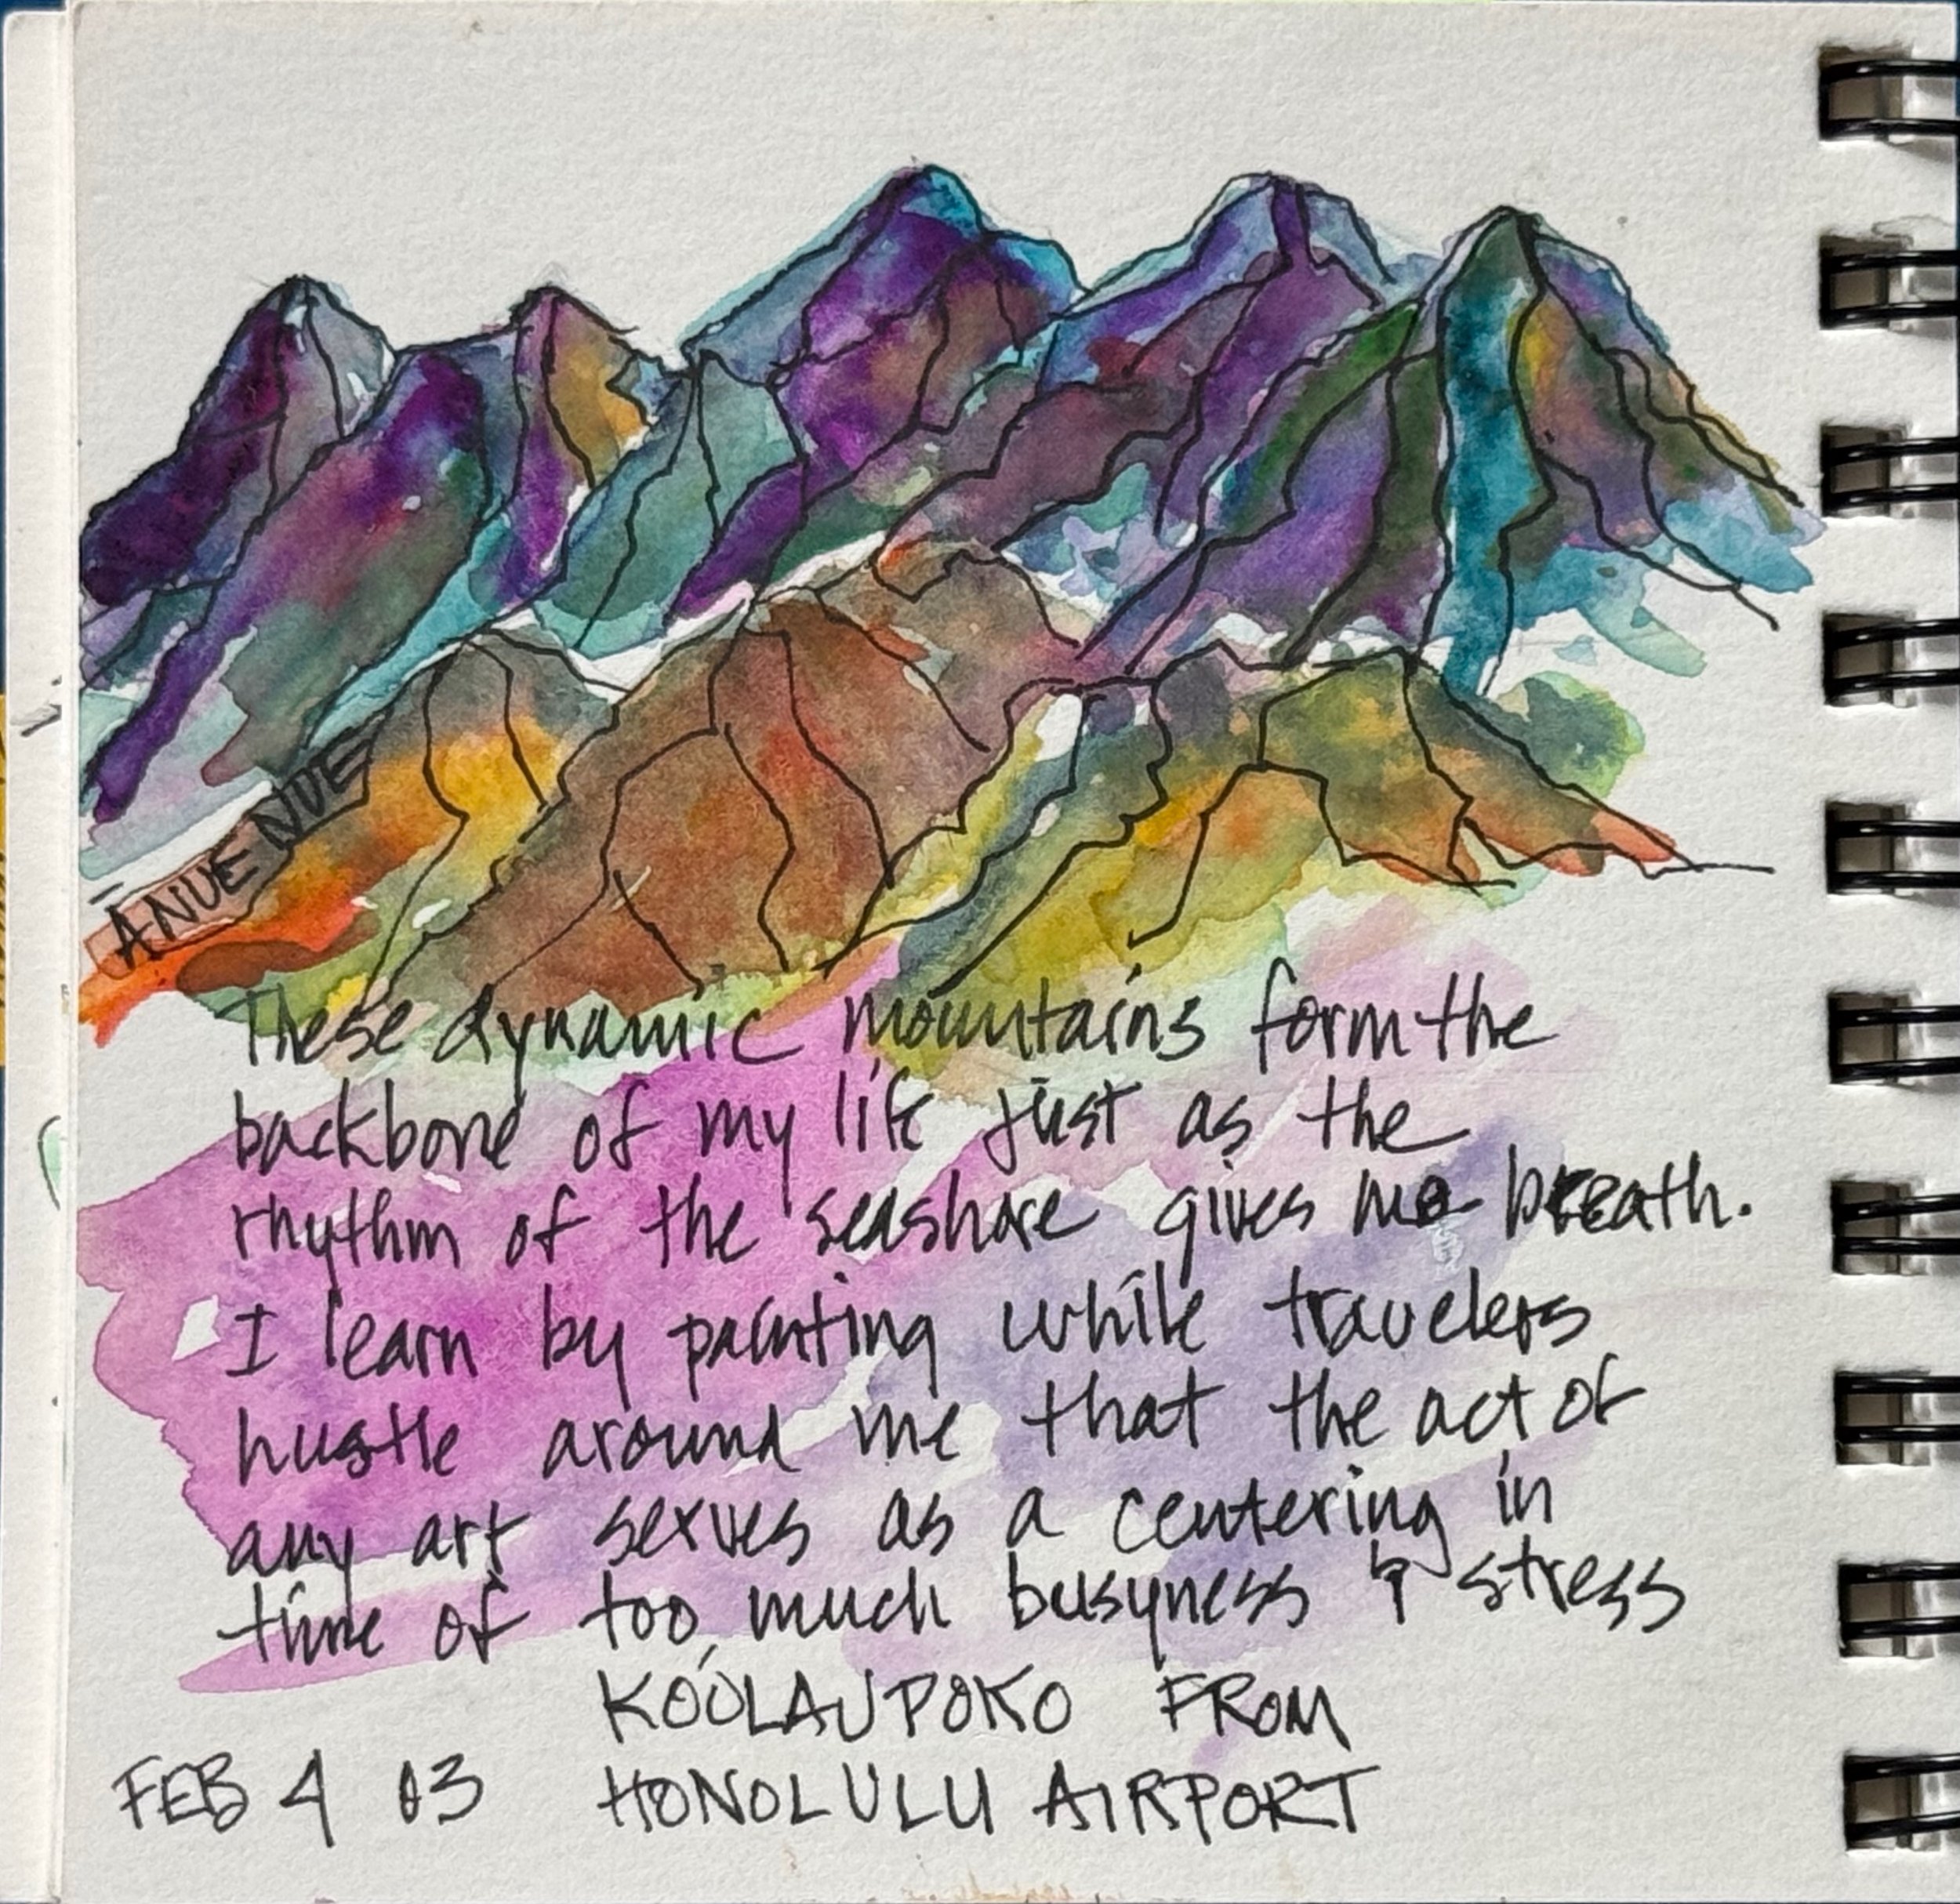 ĀNUENUE
These dynamic mountains form the
backbone of my life just as the
rhythm of the seashore gives me breath.
I learn by painting while travelers
hustle around me that the act of
any art serves as a centering in
time of too much busyness & stress
KO'OLAUPOKO FROM
FEB 4 03 HONOLULU AIRPORT